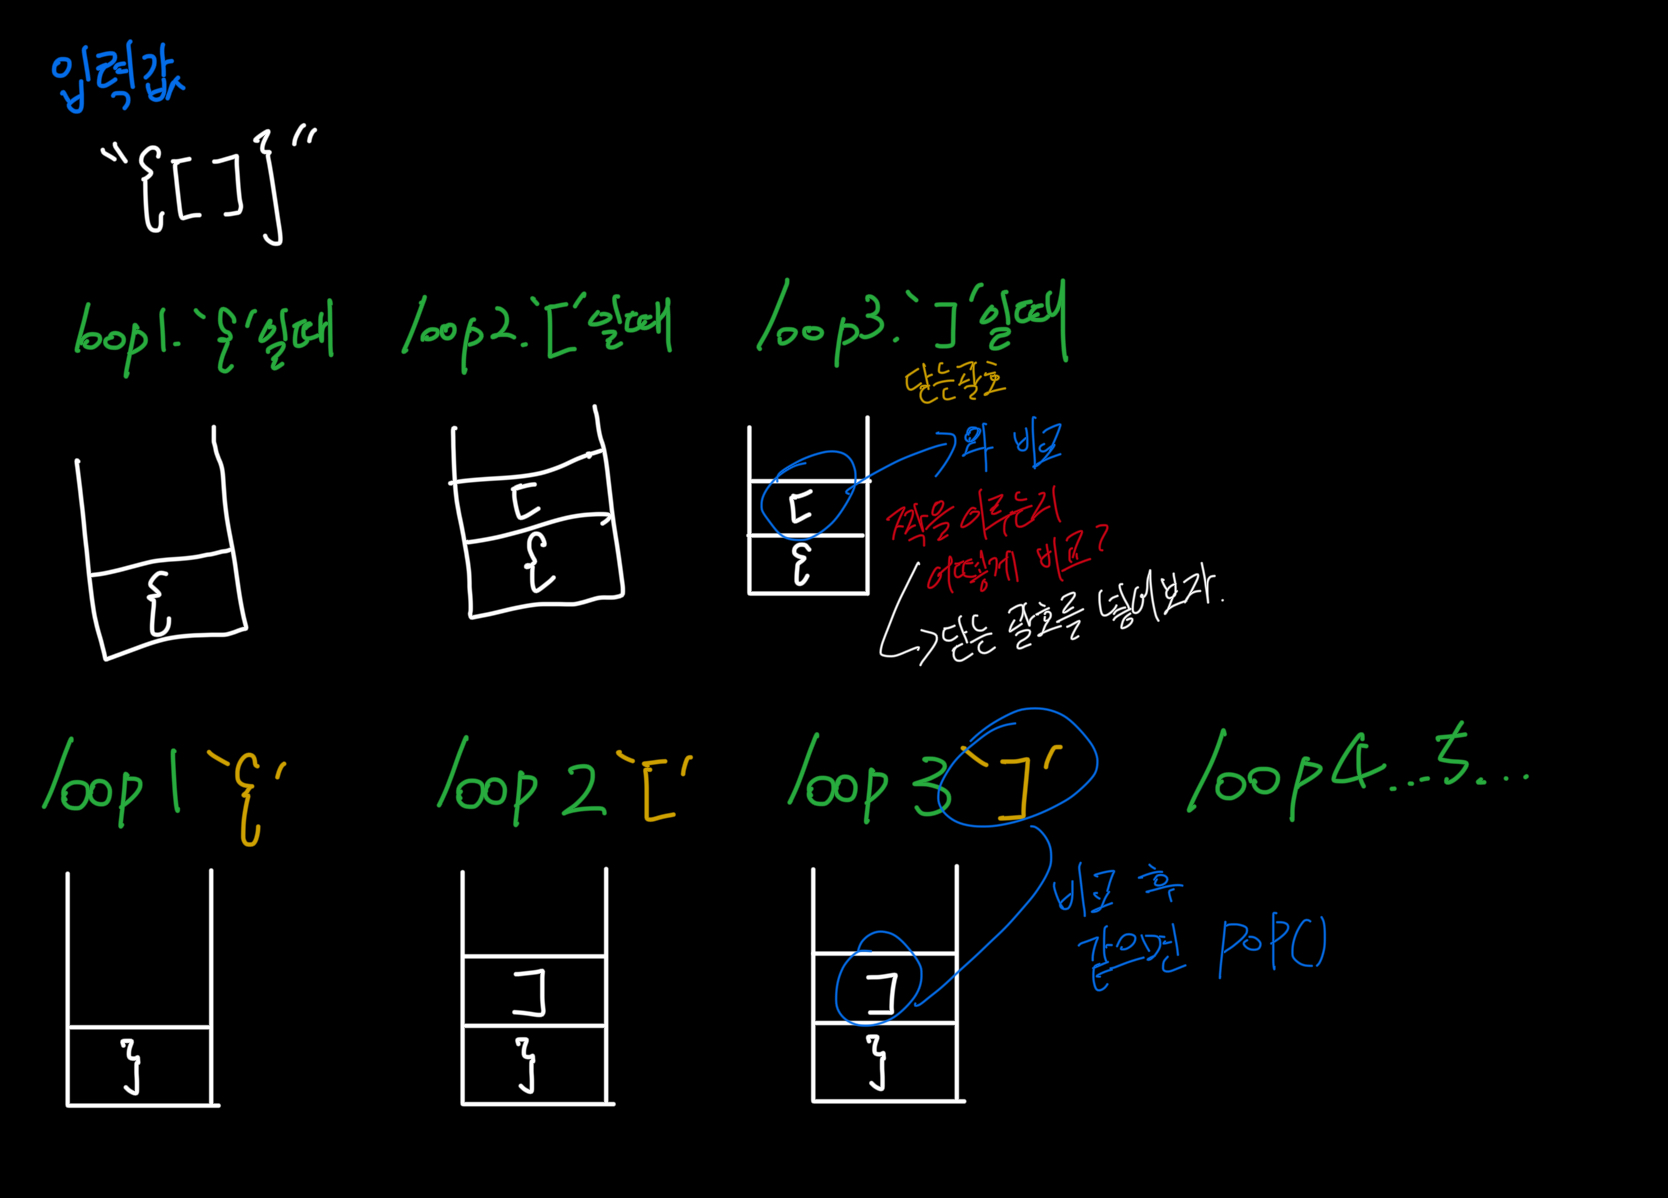 입력값
"{[]}"
loop1. '{'일때
loop2. '['일때
loop3. ']'일때
닫는괄호
[
{
[
{
[
{
와 비교
짝을 이루는지
어떻게 비교?
닫는 괄호를 넣어보자.
loop 1 '{'
loop 2 '['
loop 3 ']'
loop 4...5...
}
]
}
]
}
비교 후
같으면 pop()